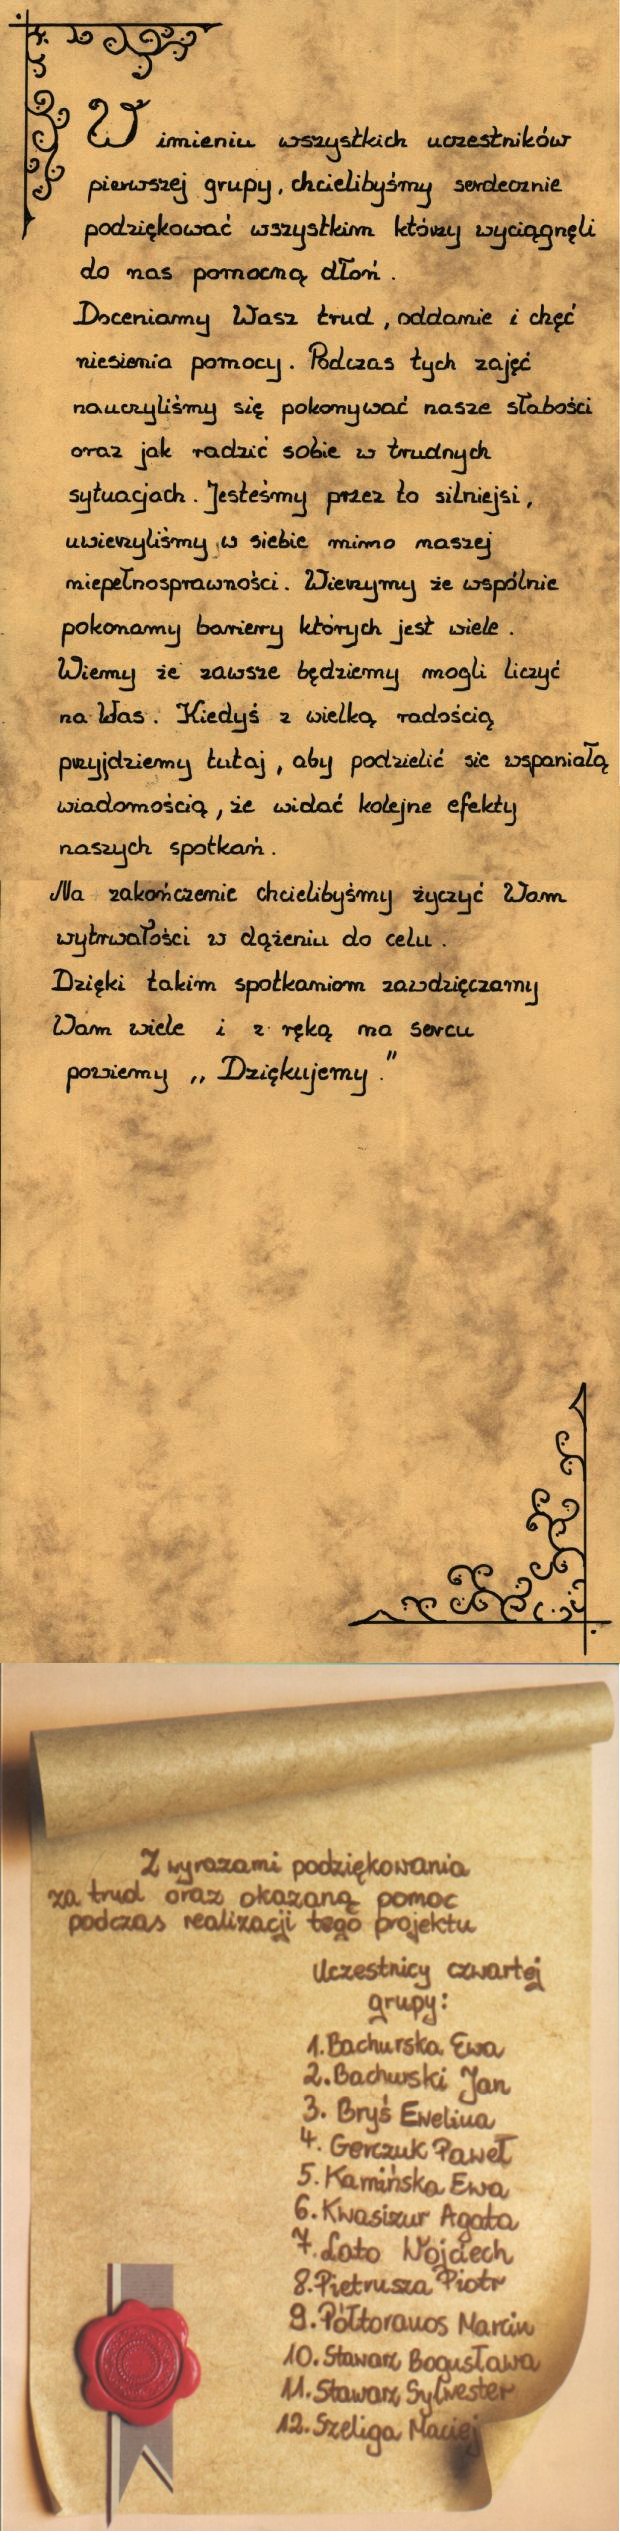 W imieniu wszystkich uczestników
pierwszej grupy, chcielibyśmy serdecznie
podziękować wszystkim którzy wyciągnęli
do nas pomocną dłoń.
Doceniamy Wasz trud, oddanie i chęć
niesienia pomocy. Podczas tych zajęć
nauczyliśmy się pokonywać nasze słabości
oraz jak radzić sobie w trudnych
sytuacjach. Jesteśmy przez to silniejsi,
uwierzyliśmy w siebie mimo naszej
niepełnosprawności. Wierzymy że wspólnie
pokonamy bariery których jest wiele.
Wiemy że zawsze będziemy mogli liczyć
na Was. Kiedyś z wielką radością
przyjdziemy tutaj, aby podzielić sie wspaniałą
wiadomością, że widać kolejne efekty
naszych spotkań.
Na zakończenie chcielibyśmy życzyć Wam
wytrwałości w dążeniu do celu.
Dzięki takim spotkaniom zawdzięczamy
Wam wiele i z ręką na sercu
powiemy ,, Dziękujemy."
Z wyrazami podziękowania
za trud oraz okazaną pomoc
podczas realizacji tego projektu
Uczestnicy czwartej
grupy:
1. Bachurska Ewa
2. Bachurski Jan
3. Bryś Ewelina
4. Gerczuk Paweł
5. Kamińska Ewa
6. Kwasizur Agata
7. Lato Wojciech
8. Pietrusza Piotr
9. Półtoranos Marcin
10. Stawarz Bogusława
11. Stawarz Sylwester
12. Szeliga Maciej